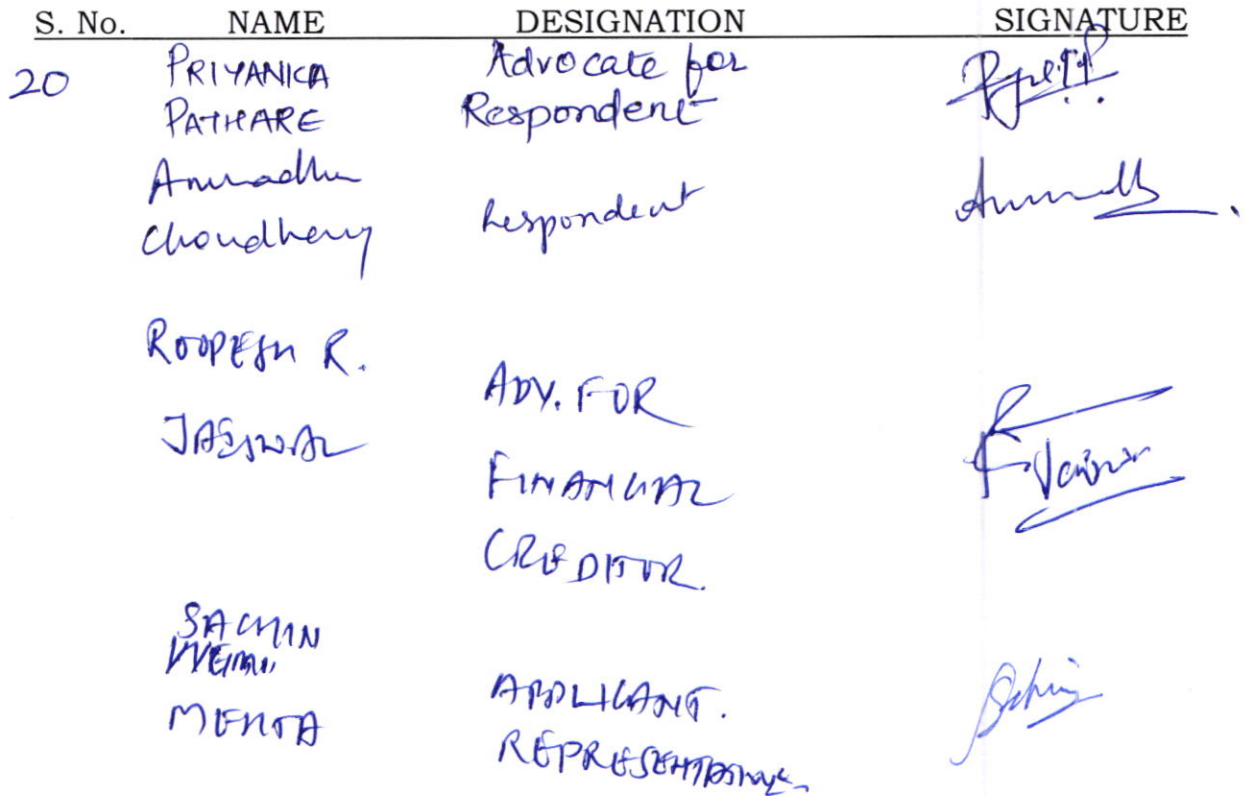 S. No. NAME DESIGNATION SIGNATURE
20 PRIYANKA Advocate for
PATHARE Respondent
Anuradha
Choudhary Respondent
ROOPESH R.
JAISWAL ADV. FOR
FINANCIAL
CREDITOR.
SACHIN
MEHTA APPLICANT.
REPRESENTATIVE